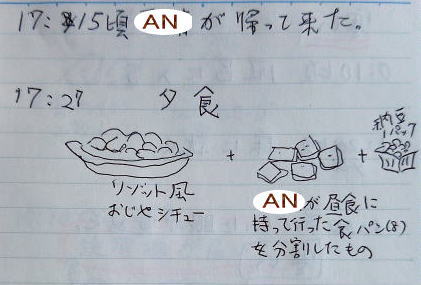 17:15頃 AN が帰って来た。
17:27 夕食
+ +
納豆
1パック
リゾット風
おじやシチュー
AN が昼食に
持って行った食パン(8)
を分割したもの